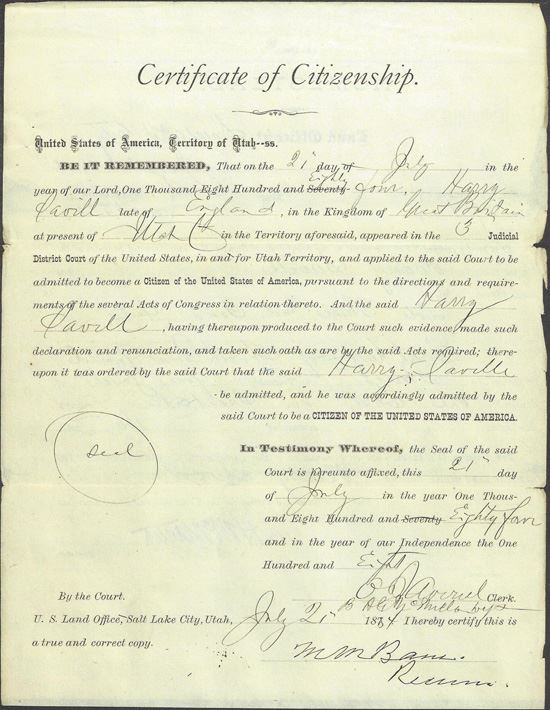 Certificate of Citizenship.
United States of America, Territory of Utah--ss.
BE IT REMEMBERED, That on the 21st day of July in the
year of our Lord, One Thousand Eight Hundred and Seventy Eighty four, Harry
Savill late of England, in the Kingdom of Great Britain
at present of Utah Co in the Territory aforesaid, appeared in the 3 Judicial
District Court of the United States, in and for Utah Territory, and applied to the said Court to be
admitted to become a Citizen of the United States of America, pursuant to the directions and require-
ments of the several Acts of Congress in relation thereto. And the said Harry
Savill, having thereupon produced to the Court such evidence, made such
declaration and renunciation, and taken such oath as are by the said Acts required; there-
upon it was ordered by the said Court that the said Harry Saville
be admitted, and he was accordingly admitted by the
said Court to be a CITIZEN OF THE UNITED STATES OF AMERICA.
seal
In Testimony Whereof, the Seal of the said
Court is hereunto affixed, this 21st day
of July in the year One Thous-
and Eight Hundred and Seventy Eighty four
and in the year of our Independence the One
Hundred and Eight
Clerk.
By the Court.
U. S. Land Office, Salt Lake City, Utah, July 21st 1884 I hereby certify this is
a true and correct copy.